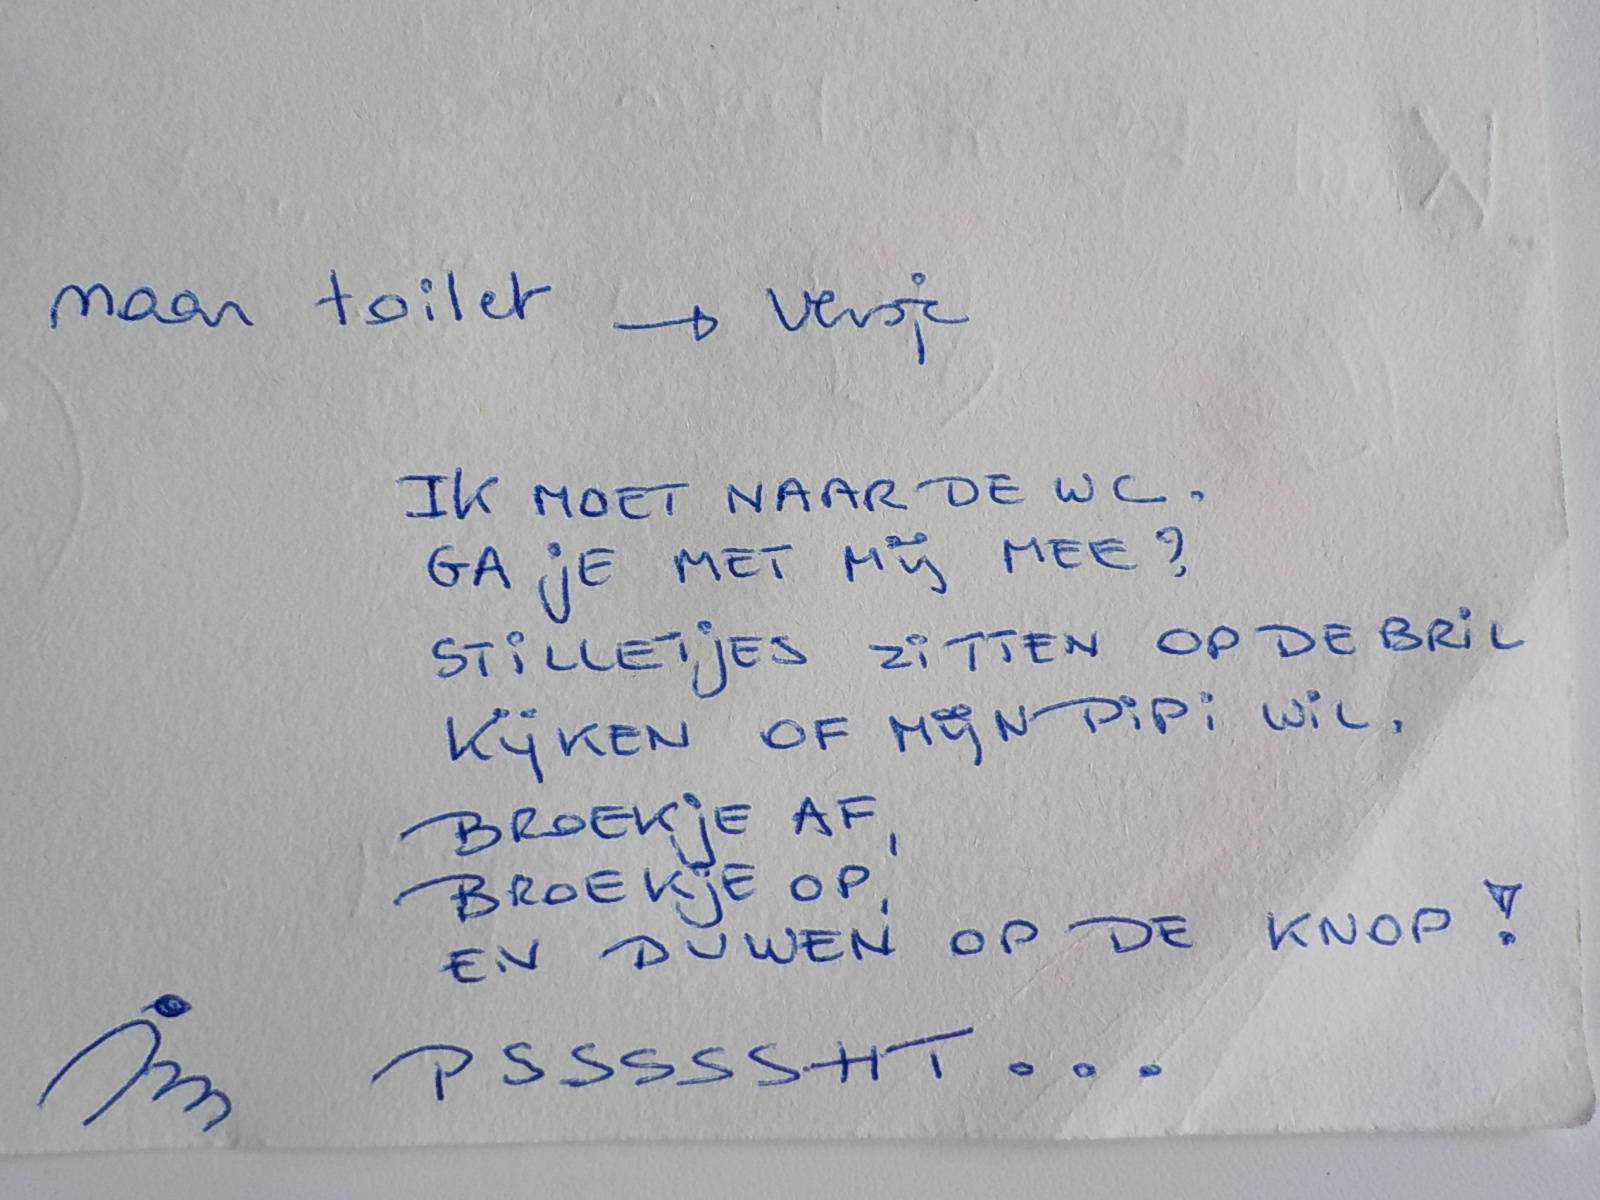 naar toilet → versje
IK MOET NAAR DE WC.
GA jE MET MIJ MEE?
STiLLETjES ZiTTEN OP DE BRiL
KIJKEN OF MIJN PiPi WiL.
BROEKjE AF,
BROEKjE OP,
EN DUWEN OP DE KNOP!
PSSSSSHT...